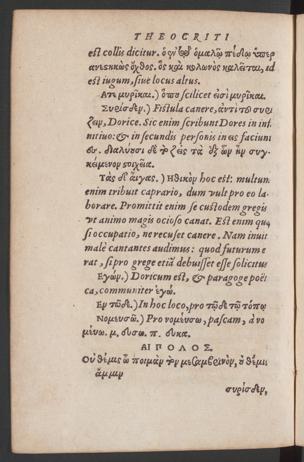 THEOCRITI
est collis dicitur. ὁ γὸ ὁμαλῷ πεδίῳ ὑπερ
ανεστηκὼς ὄχθος. ὃς καὶ κολωνὸς καλεῖται, id
est iugum, siue locus altus.
Ατε μυρῖκαι.) ὅπου scilicet εἰσὶ μυρῖκαι.
Συρίσδεν.) Fistula canere, ἀντὶ τοῦ συρί
ζειν, Dorice. Sic enim scribunt Dores in infi
nitiuo: & in secundis personis in εις faciunt
εν.
κείμενον στοιχεῖα.
Τὰς δ' αἶγας.) Ηθικὸν hoc est: multum
enim tribuit caprario, dum vult pro eo la-
borare. Promittit enim se custodem gregis
vt animo magis ocioso canat. Est enim quasi
si occupatio, ne recuset canere. Nam inuit
malè cantantes audimus: quod futurum e
rat, si pro grege etiā debuisset esse solicitus
Εγών.) Doricum est, & paragoge poëti
ca, communiter ἐγώ.
Εν τῷδε.) In hoc loco, pro τῷδε τῷ τόπῳ
Νομευσῶ.) Pro νομεύσω, pascam, à νο
μεύω. μ. ευσω. π. ευκα.
ΑΙΠΟΛΟΣ.
Οὐ θέμις ὦ ποιμὰν τὸ μεσαμβρινὸν, οὐ θέμις
ἄμμιν
συρίσδεν,